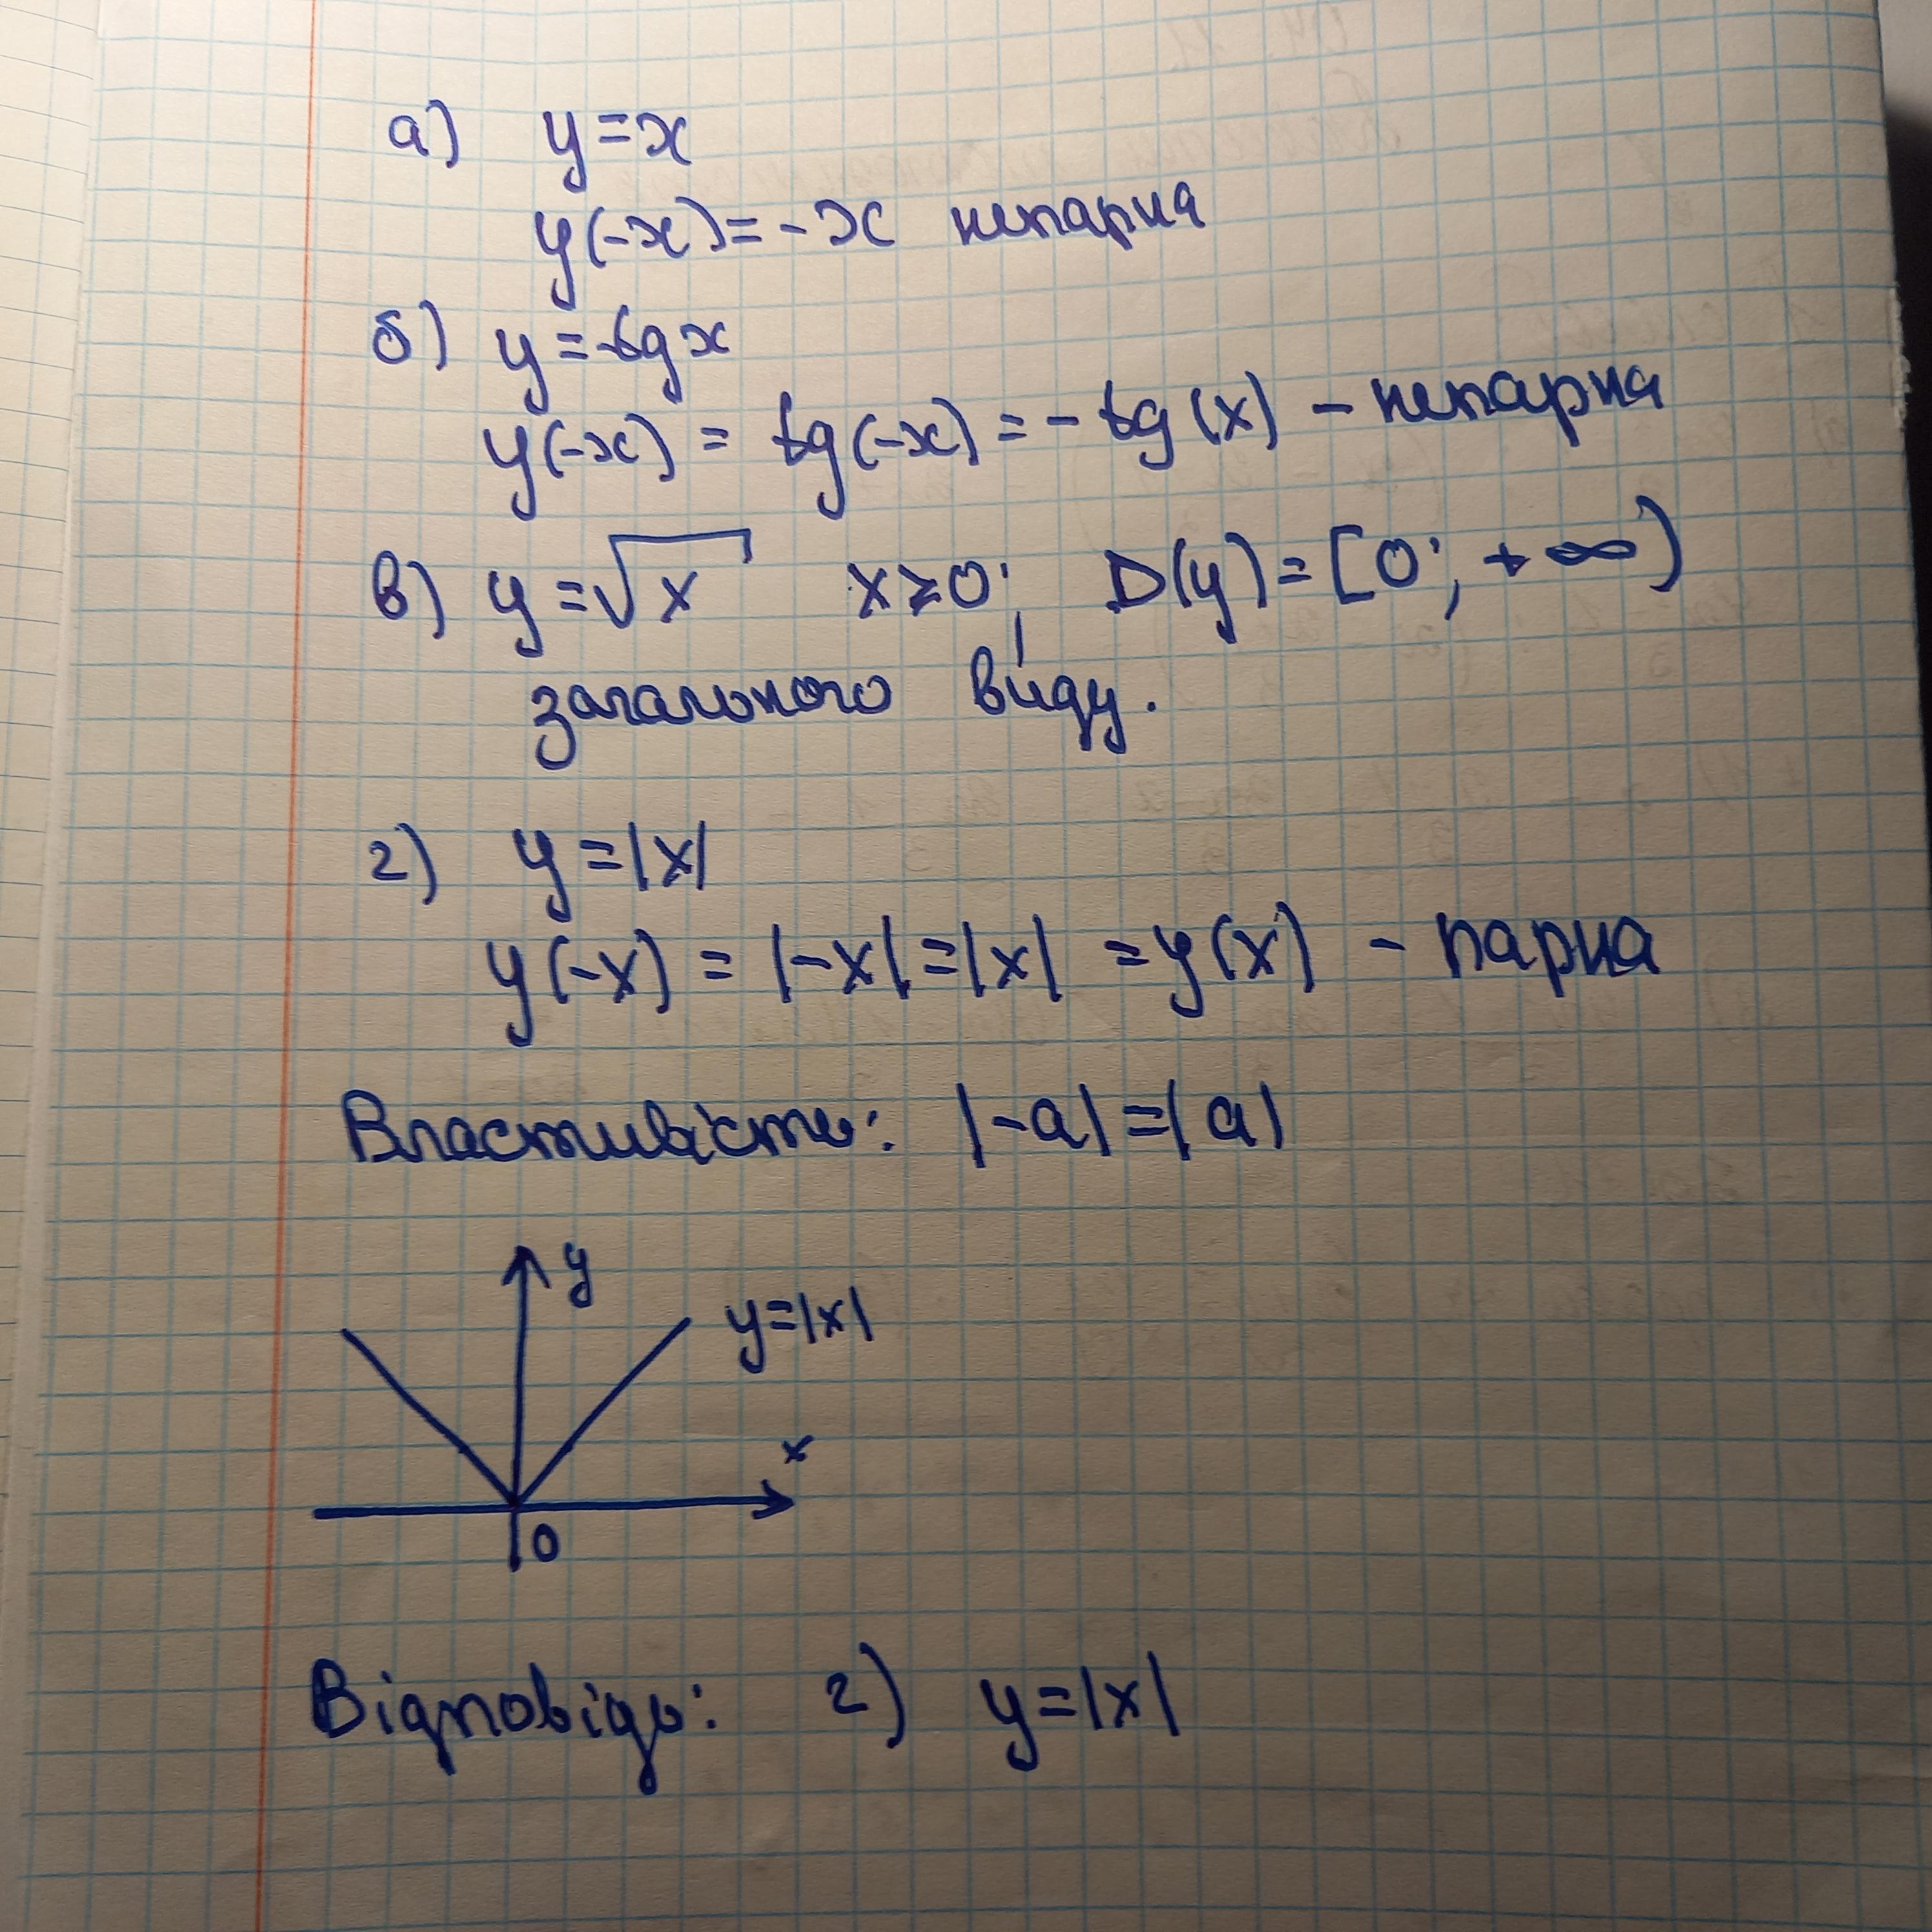 а) y=x
y(-x)=-x непарна
б) y=tgx
y(-x) = tg(-x) = -tg(x) - непарна
в) y=√x x≥0; D(y)=[0; +∞)
загального виду.
г) y=|x|
y(-x) = |-x|=|x| =y(x) - парна
Властивість: |-a|=|a|
y
y=|x|
x
0
Відповідь: г) y=|x|